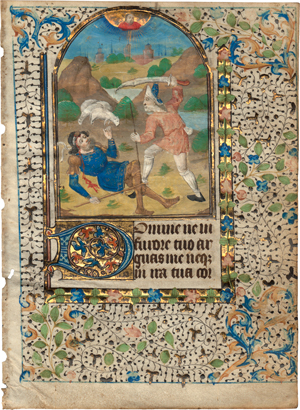 Domine ne in
furore tuo ar
guas me neq3
in ira tua cor